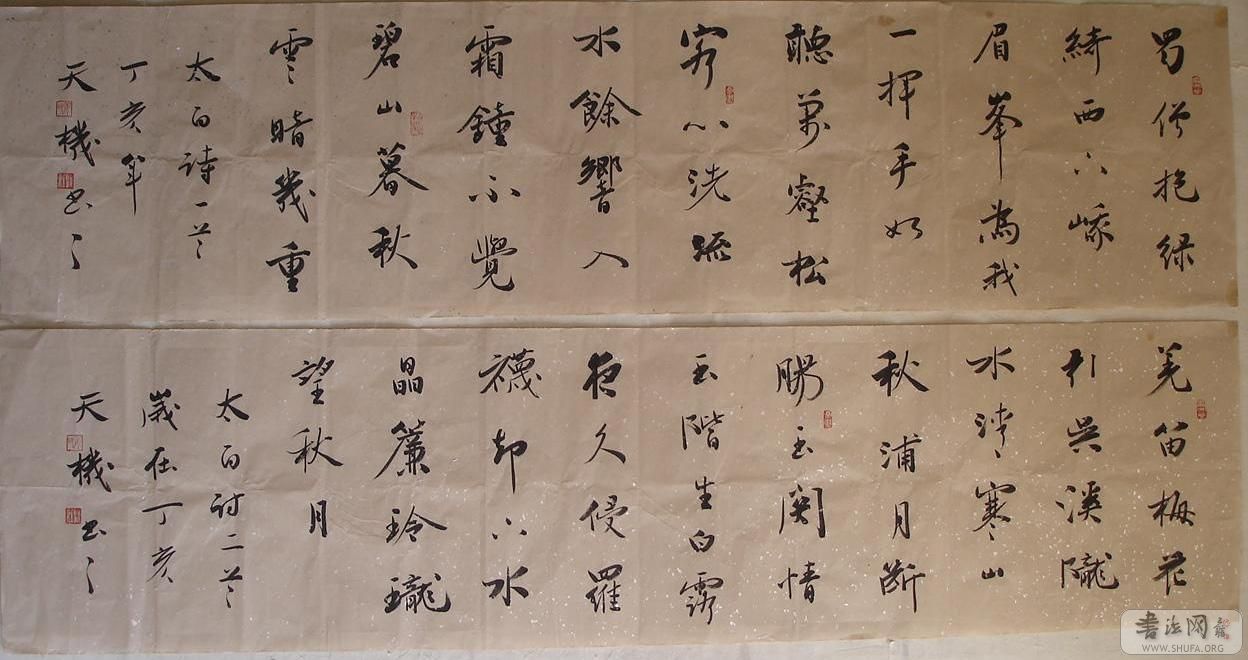 蜀僧抱綠
綺西下峨
眉峯為我
一揮手如
聽萬壑松
客心洗流
水餘響入
霜鐘不覺
碧山暮秋
雲暗幾重
太白詩一首
丁亥年
天機書之
羌笛梅花
引吳溪隴
水清寒山
秋浦月斷
腸玉関情
玉階生白露
夜久侵羅
襪却下水
晶簾玲瓏
望秋月
太白詩二首
歲在丁亥
天機書之
書法网
WWW.SHUFA.ORG